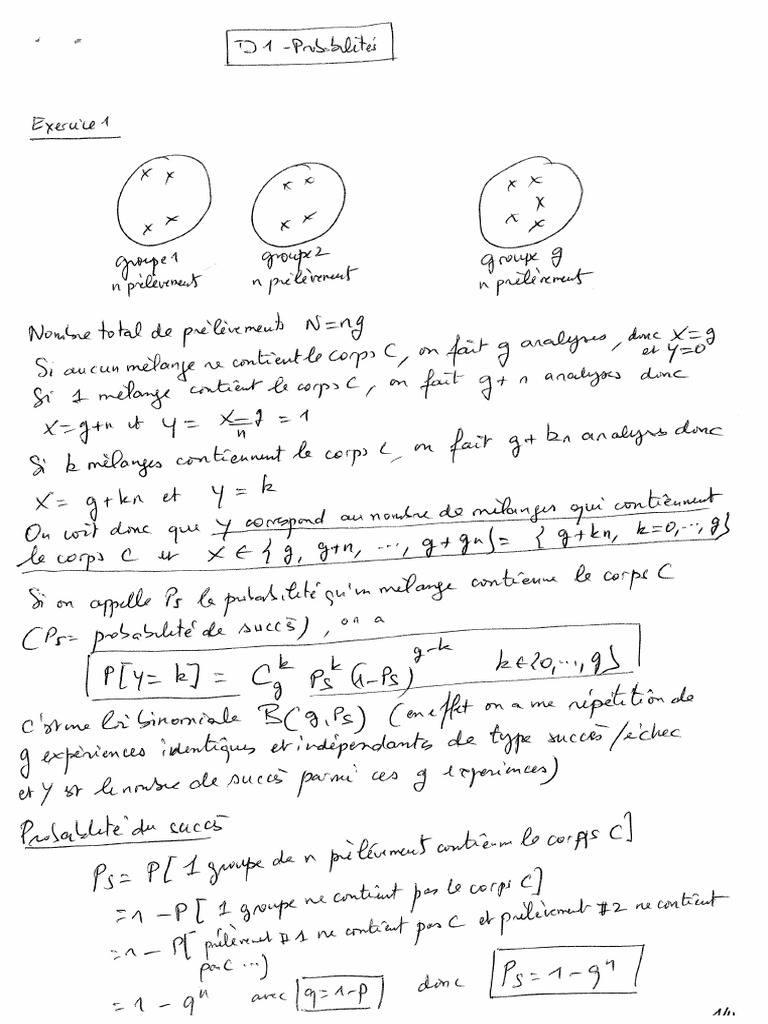 TD1 - Probabilités
Exercice 1
groupe 1 groupe 2 groupe g
n prélèvement n prélèvement n prélèvement
Nombre total de prélèvements N = ng
Si aucun mélange ne contient le corps C, on fait g analyses, donc X = g et Y = 0
Si 1 mélange contient le corps C, on fait g + n analyses donc
X = g+n et Y = (X-g)/n = 1
Si k mélanges contiennent le corps C, on fait g + kn analyses donc
X = g + kn et Y = k
On voit donc que Y correspond au nombre de mélanges qui contiennent
le corps C et X ∈ {g, g+n, ..., g+gn} = {g+kn, k=0,...,g}
Si on appelle Ps la probabilité qu'un mélange contienne le corps C
(Ps = probabilité de succès), on a
P[Y = k] = C_g^k Ps^k (1-Ps)^{g-k} k ∈ {0,...,g}
c'est une loi binomiale B(g, Ps) (en effet on a une répétition de
g expériences identiques et indépendants de type succès/échec
et Y est le nombre de succès parmi ces g expériences)
Probabilité du succès
Ps = P[1 groupe de n prélèvement contienne le corps C]
= 1 - P[1 groupe ne contient pas le corps C]
= 1 - P[prélèvement #1 ne contient pas C et prélèvement #2 ne contient
pas C ...)
= 1 - q^n avec q = 1-p donc Ps = 1 - q^n